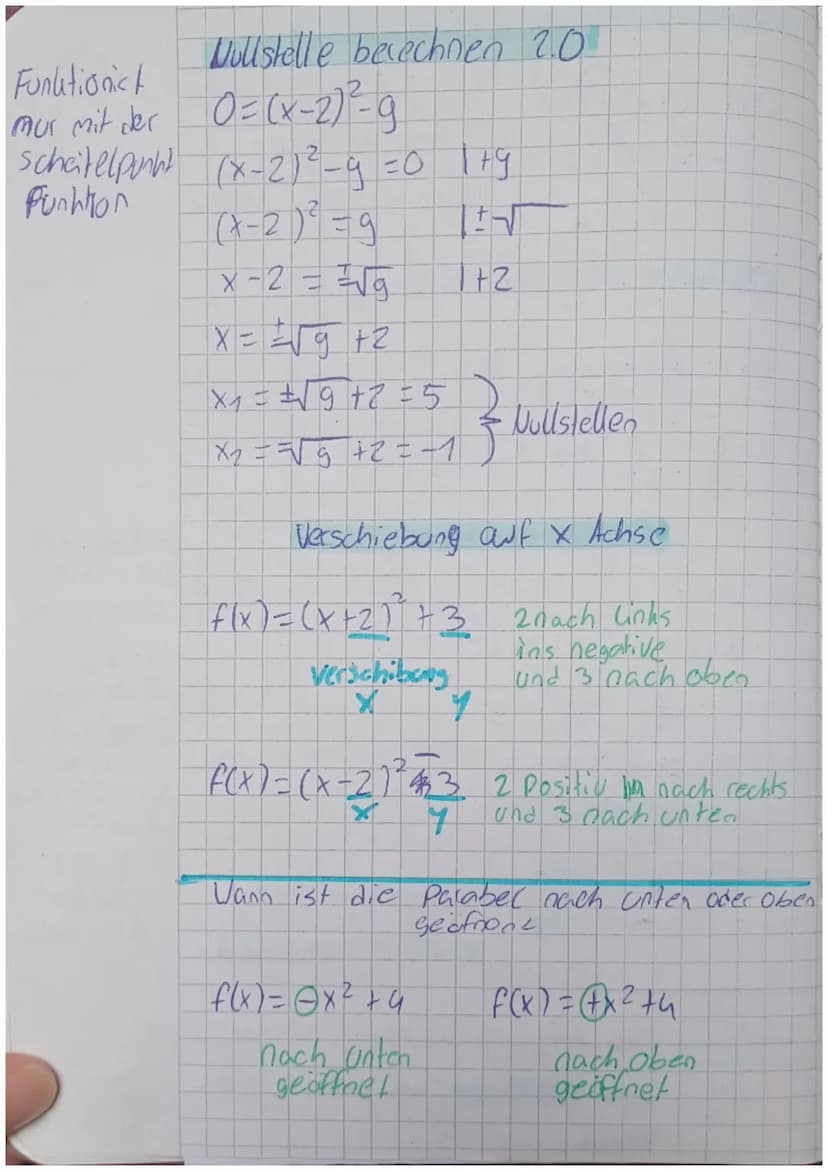 Nullstelle berechnen 2.0
Funktioniert
nur mit der
Scheitelpunkt
Funktion
0=(x-2)²-9
(x-2)²-9=0 |+9
(x-2)²=9 |±√
x-2=±√9 |+2
x=±√9+2
x₁=±√9+2=5
x₂=-√9+2=-1
} Nullstellen
Verschiebung auf x Achse
f(x)=(x+2)²+3 2 nach links
ins negative
und 3 nach oben
Verschibung
x y
f(x)=(x-2)²-3 2 Positiv nach rechts
und 3 nach unten
x y
Wann ist die Parabel nach unten oder oben
geöfront
f(x)=-x²+4 f(x)=+x²+4
nach unten
geöffnet
nach oben
geöffnet